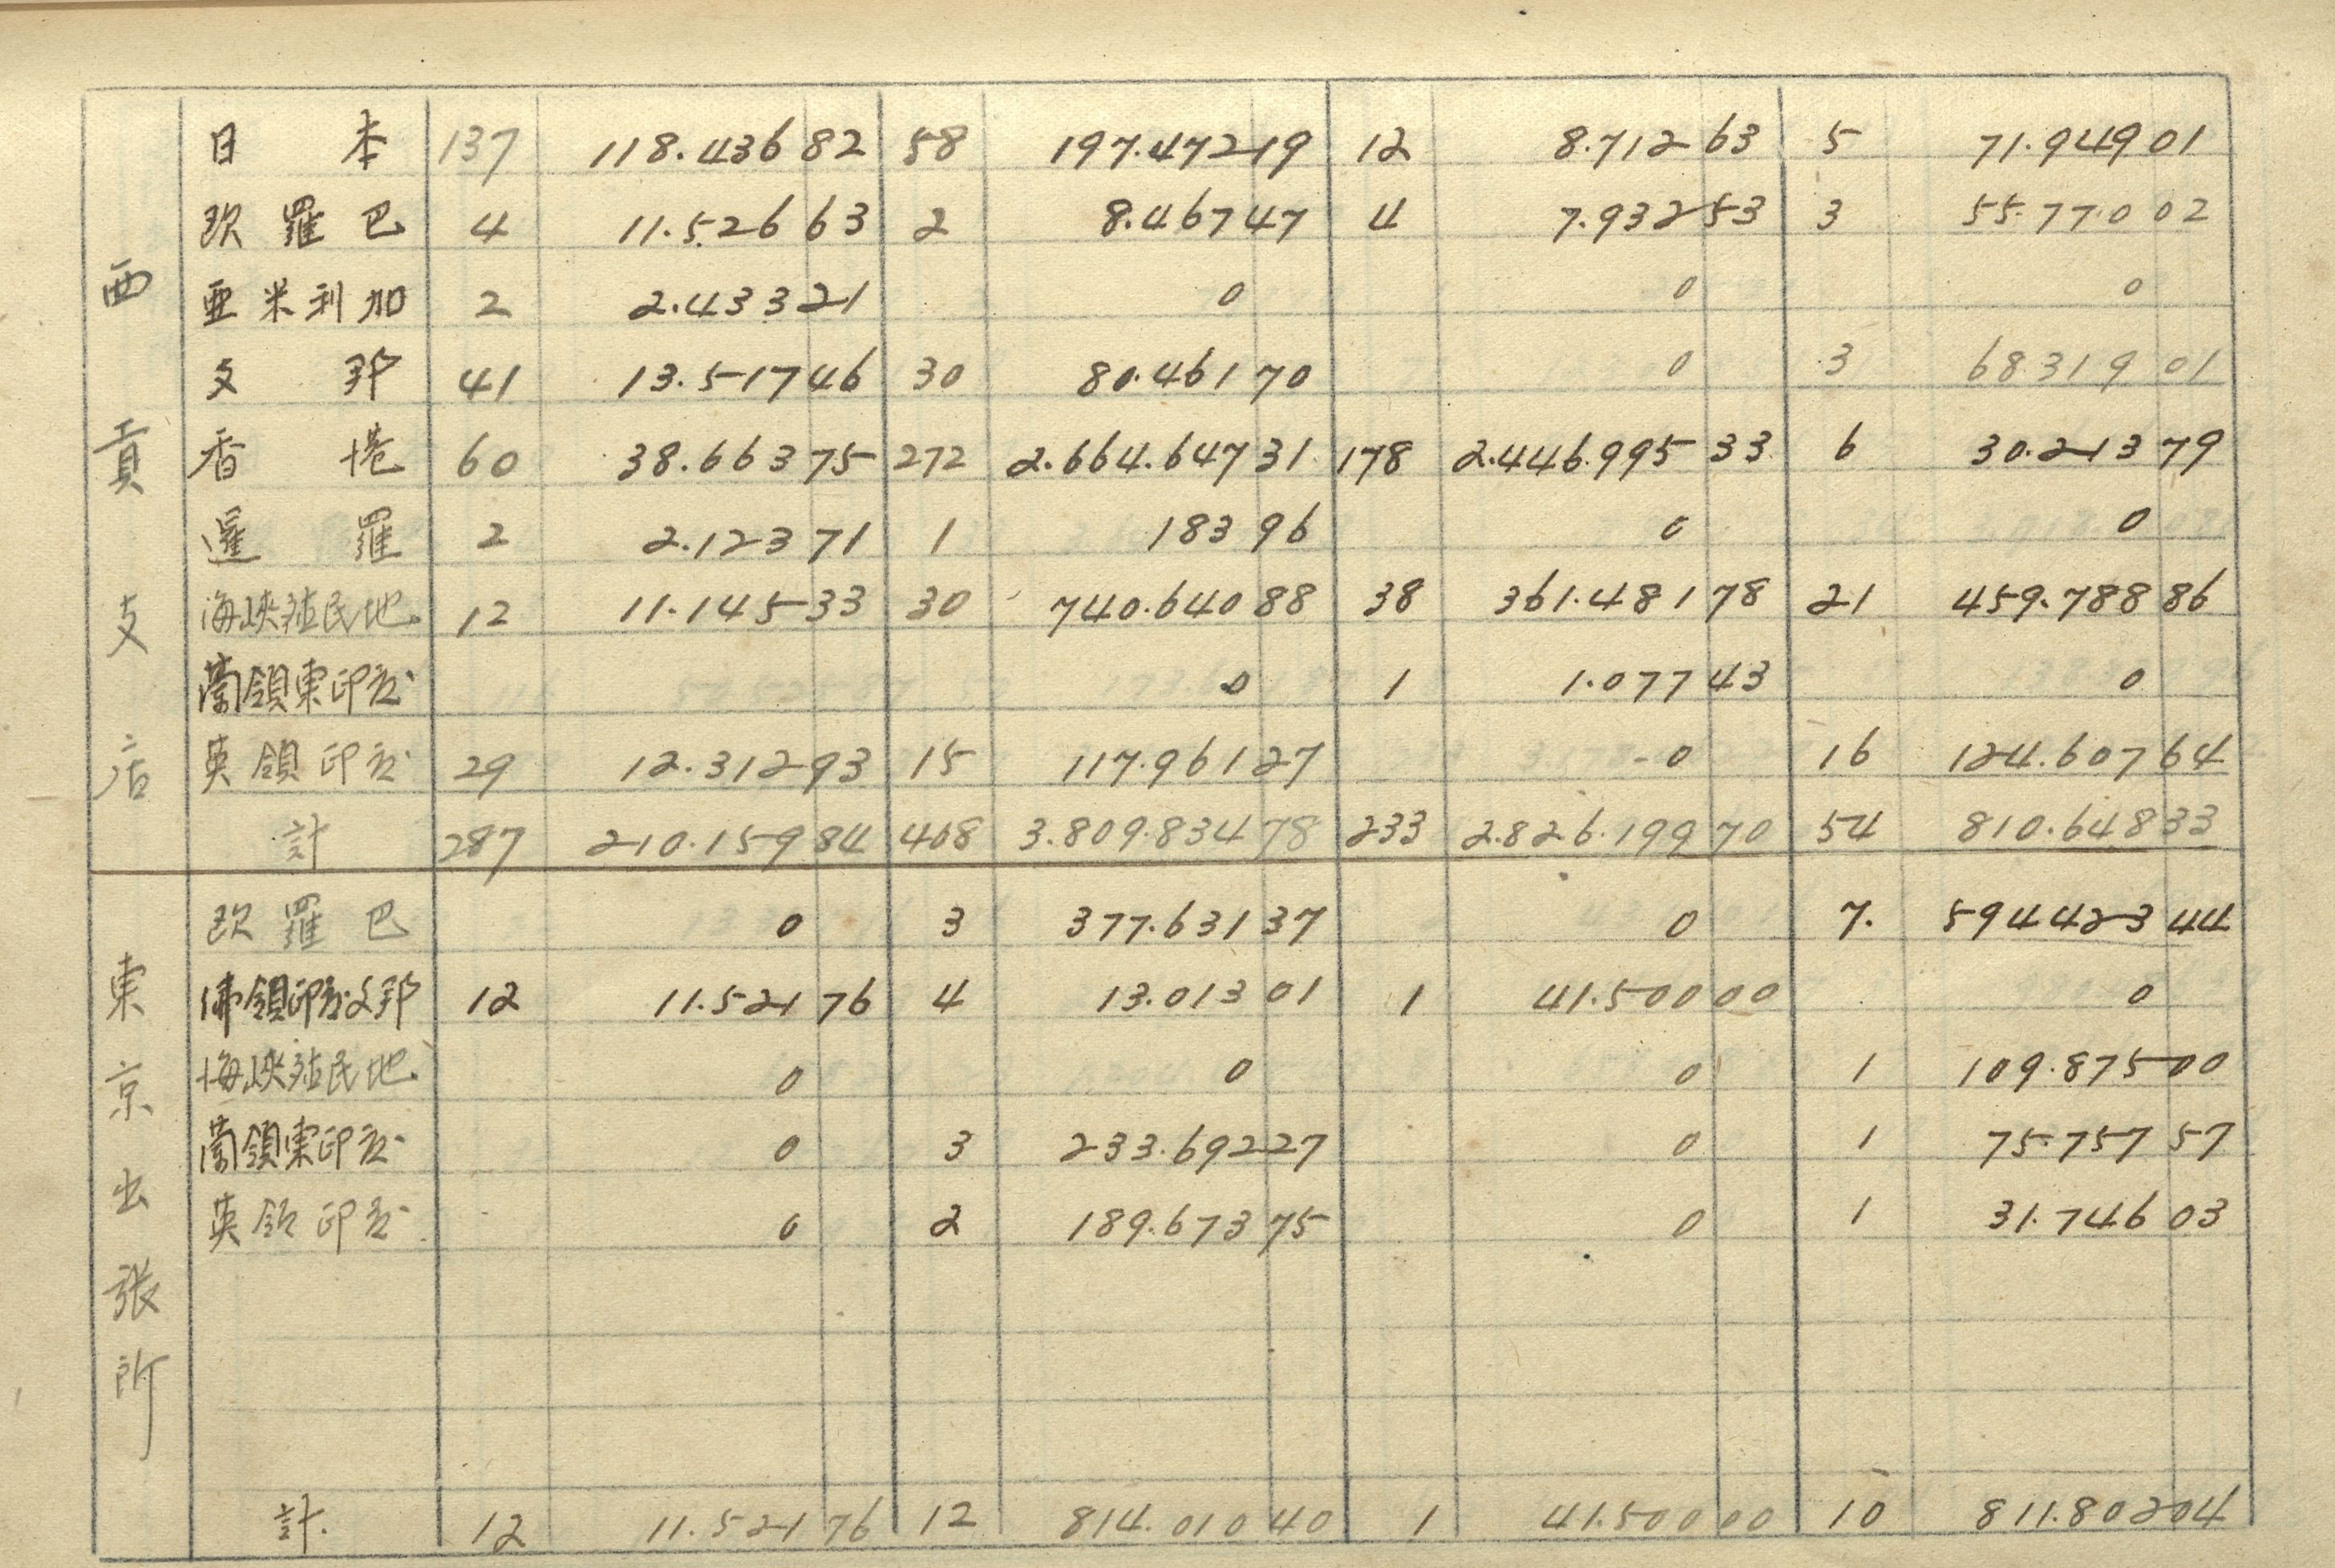 西貢支店
日本 137 118.436 82 58 197.472 19 12 8.712 63 5 71.949 01
欧羅巴 4 11.526 63 2 8.467 47 4 7.932 53 3 55.770 02
亜米利加 2 2.433 21 0 0 0
支那 41 13.517 46 30 80.461 70 0 3 68.319 01
香港 60 38.663 75 272 2.664.647 31 178 2.446.995 33 6 30.213 79
暹羅 2 2.123 71 1 183 96 0 0
海峡植民地 12 11.145 33 30 740.640 88 38 361.481 78 21 459.788 86
蘭領東印度 0 1 1.077 43 0
英領印度 29 12.312 93 15 117.961 27 0 16 124.607 64
計 287 210.159 84 408 3.809.834 78 233 2.826.199 70 54 810.648 33
東京出張所
欧羅巴 0 3 377.631 37 0 7. 594423 44
佛領印度支那 12 11.521 76 4 13.013 01 1 41.500 00 0
海峡植民地 0 0 0 1 109.875 00
蘭領東印度 0 3 233.692 27 0 1 75.757 57
英領印度 0 2 189.673 75 0 1 31.746 03
計. 12 11.521 76 12 814.010 40 1 41.500 00 10 811.802 04